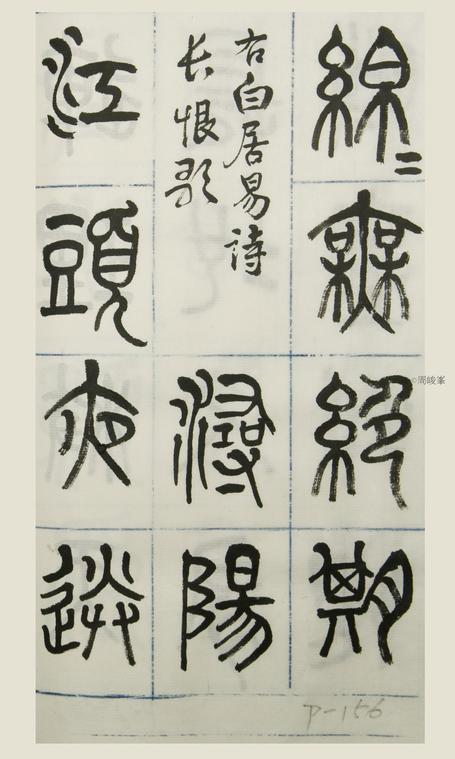 綿二無絕期
右白居易詩
长恨歌
潯陽
江頭夜送
P-156
©周峻峯